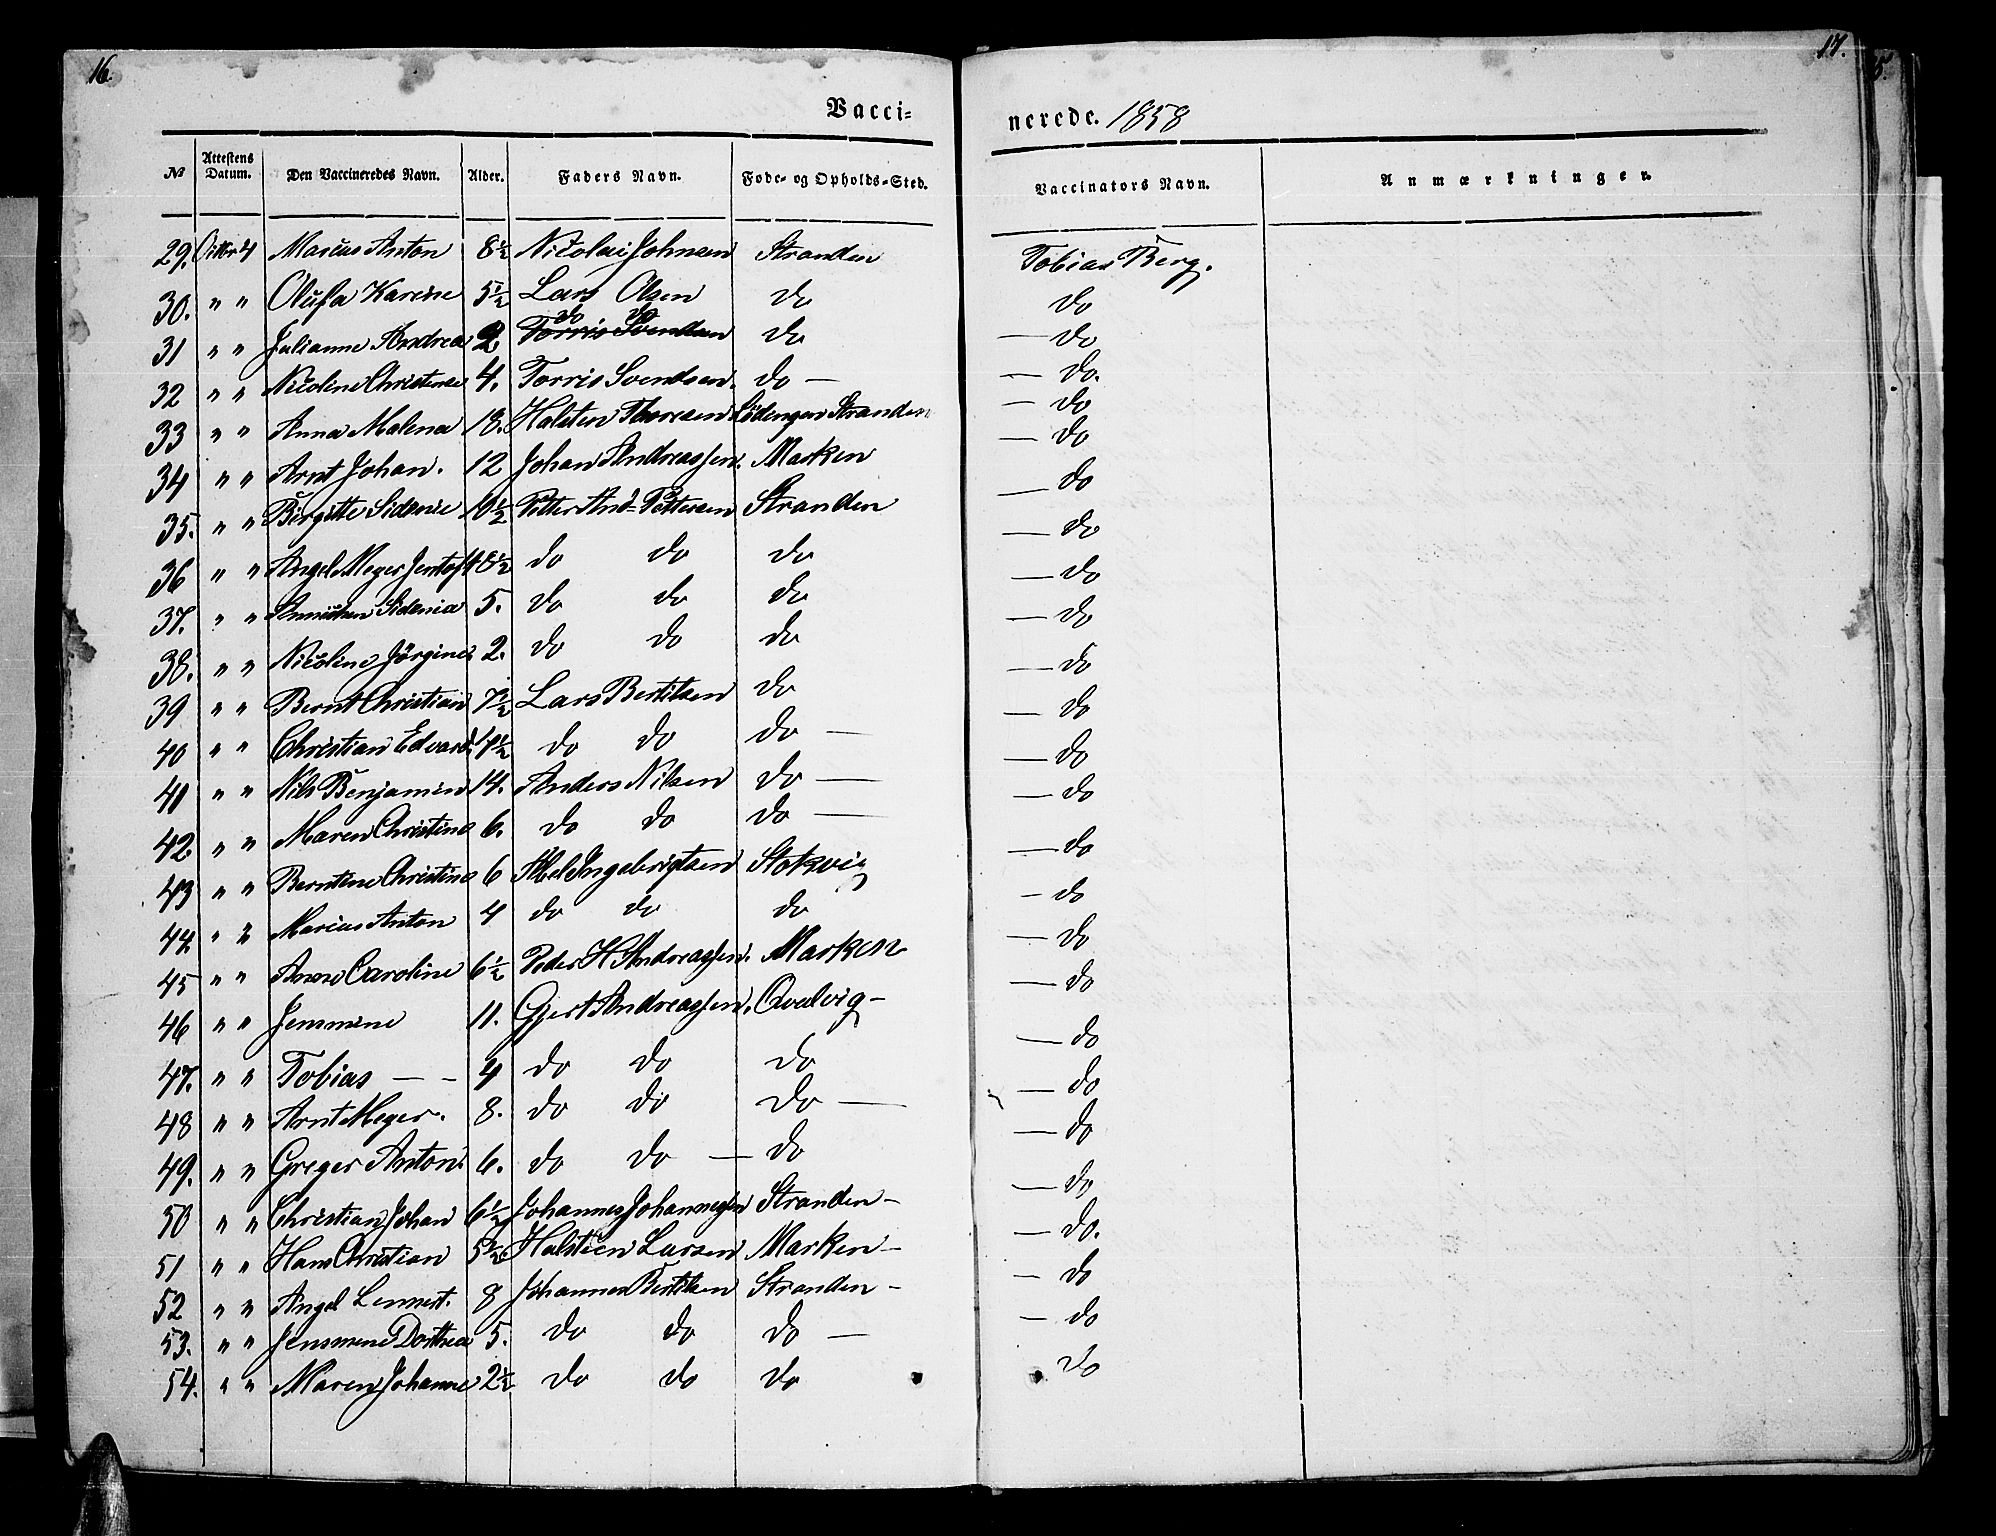 16.
17.
Vacci-
nerede. 1858
№ Attestens Datum. Den Vaccineredes Navn. Alder. Faders Navn. Føde- og Opholds-Sted. Vaccinators Navn. Anmærkninger.
29. Octbr 4 Marcus Anton 8½ Nicolai Johnsen Stranden Tobias Berg.
30. " " Olufa Karine 5½ Lars Olsen do do
do do
31 " " Julianne Andrea 2 Torris Svendsen do — do
32 " " Nicoline Christense 4. Torris Svendsen. do — — do.
33 " " Anna Malena 18. Halsten Thoresen Lødengen Stranden — do
34 " " Arnt Johan. 12 Johan Andreassen. Marken — do
35. " " Birgitte Sidenie 10½ Petter And- Pettersen Stranden — do
36 " " Angel Meyer Jentoft 8½ do do do — do
37. " " Sidenia 5. do do do — do
38. " " Nicoline Jørgine 2. do do do — do
39 " " Bernt Christian 7½ Lars Bertilsen do — do
40 " " Christian Edvard. 4½ do do do — — do
41 " " Nils Benjamin 14. Anders Nilsen do — — do
42 " " Maren Christine 6. do do do — — do
43 " " Berntine Christine 6 Abel Ingebrigtsen Stokvig — do
44 " " Marius Anton 4 do do do — do
45 " " Anne Caroline 6½ Peder H Andreassen. Marken — do
46 " " Jensmine 11. Gjert Andreassen. Qvalvig — — do
47. " " Tobias — — 4 do do do — do
48 " " Arnt Meyer. 8. do do do — — do
49. " " Greger Anton. 6. do do — do — do
50 " " Christian Johan 6½ Johannes Johannessen Stranden — — do
51 " " Hans Christian 5½. Halsten Larsen Marken — — do.
52 " " Angel Lennert. 8 Johannes Bertilsen Stranden — — do
53. " " Jensmine Dorthea 5. do do do — — do
54. " " Maren Johanne 2½ do do do do